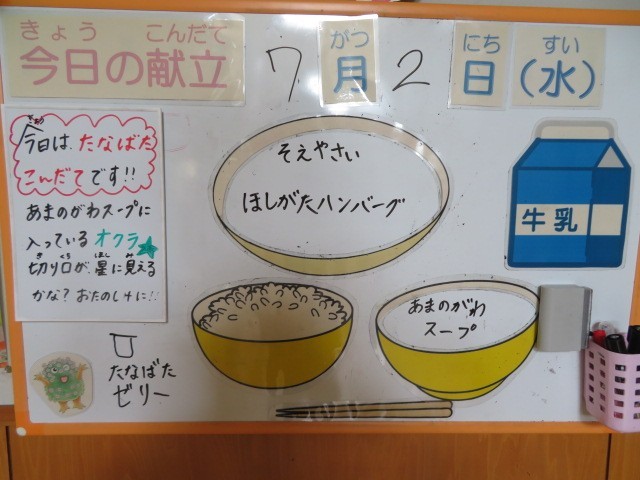 きょう こんだて
今日の献立
7 がつ 月 2 にち 日 すい (水)
今日は、たなばた
こんだてです!!
あまのがわスープに
入っている オクラ
き くち ほし み
切り口が、星に見える
かな? おたのしみに!!
そえやさい
ほしがたハンバーグ
牛乳
あまのがわ
スープ
たなばた
ゼリー